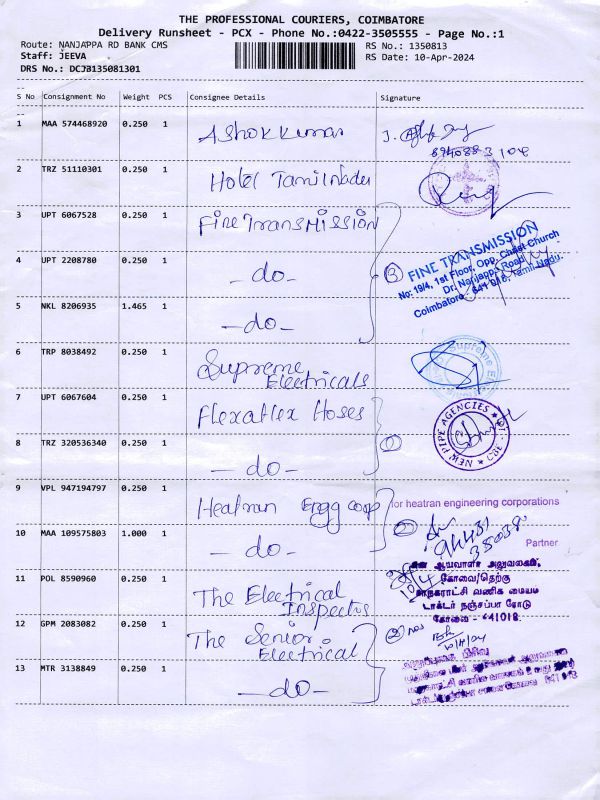 THE PROFESSIONAL COURIERS, COIMBATORE
Delivery Runsheet - PCX - Phone No.:0422-3505555 - Page No.:1
Route: NANJAPPA RD BANK CMS
RS No.: 1350813
Staff: JEEVA
RS Date: 10-Apr-2024
DRS No.: DCJB135081301
S No Consignment No Weight PCS Consignee Details Signature
1 MAA 574468920 0.250 1 Ashok Kumar
2 TRZ 51110301 0.250 1 Hotel Tamilnadu
3 UPT 6067528 0.250 1 Fine Transmission
FINE TRANSMISSION
No: 19/4, 1st Floor, Opp. Christ Church
Dr. Nanjappa Road
Coimbatore - 641 018. Tamil Nadu.
4 UPT 2208780 0.250 1 -do- 3
5 NKL 8206935 1.465 1 -do-
6 TRP 8038492 0.250 1 Supreme Electricals
7 UPT 6067604 0.250 1 Flexaflex Hoses
NEW PIPE AGENCIES
8 TRZ 320536340 0.250 1 -do- 2
9 VPL 947194797 0.250 1 Heatran Engg corp
for heatran engineering corporations
94431
35038
Partner
10 MAA 109575803 1.000 1 -do- 2
11 POL 8590960 0.250 1 The Electrical Inspector
கோவை/தெற்கு
மாநகராட்சி வணிக மையம்
டாக்டர் நஞ்சப்பா ரோடு
கோவை - 641018
12 GPM 2083082 0.250 1 The Senior Electrical
13 MTR 3138849 0.250 1 -do-